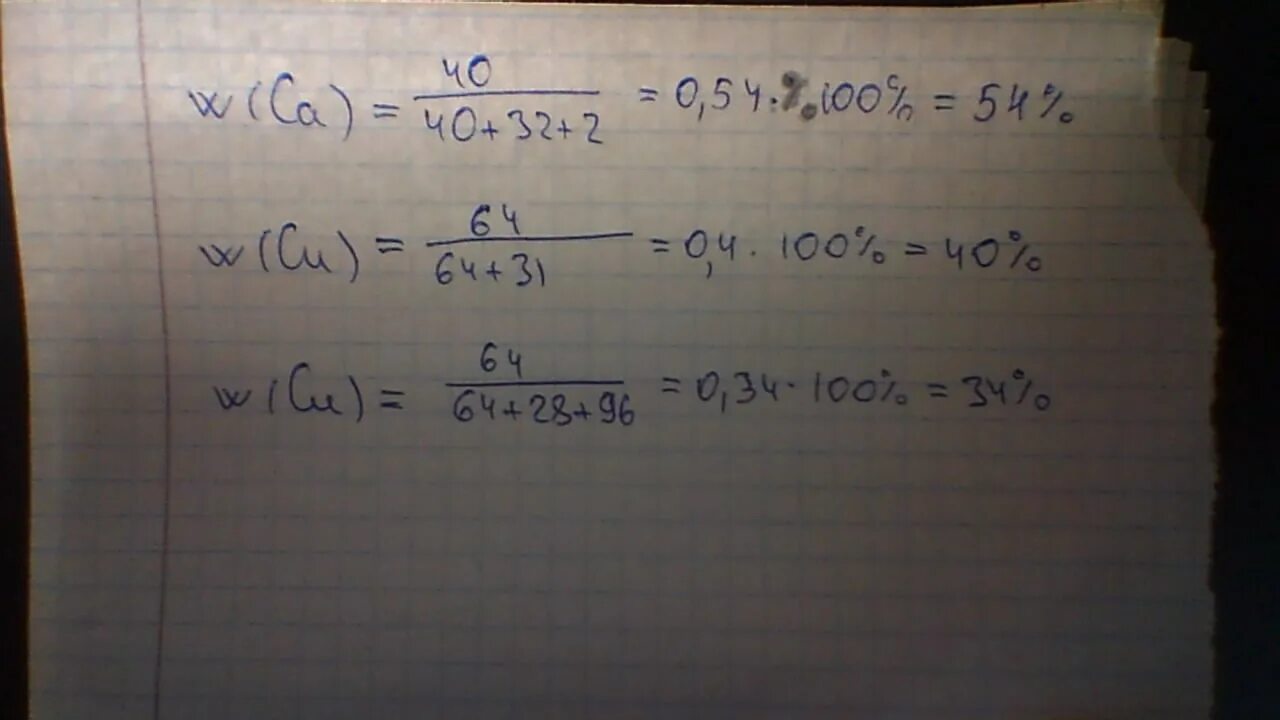 w(Ca) = 40 / (40+32+2) = 0,54 · 100% = 54%
w(Cu) = 64 / (64+31) = 0,4 · 100% = 40%
w(Cu) = 64 / (64+28+96) = 0,34 · 100% = 34%